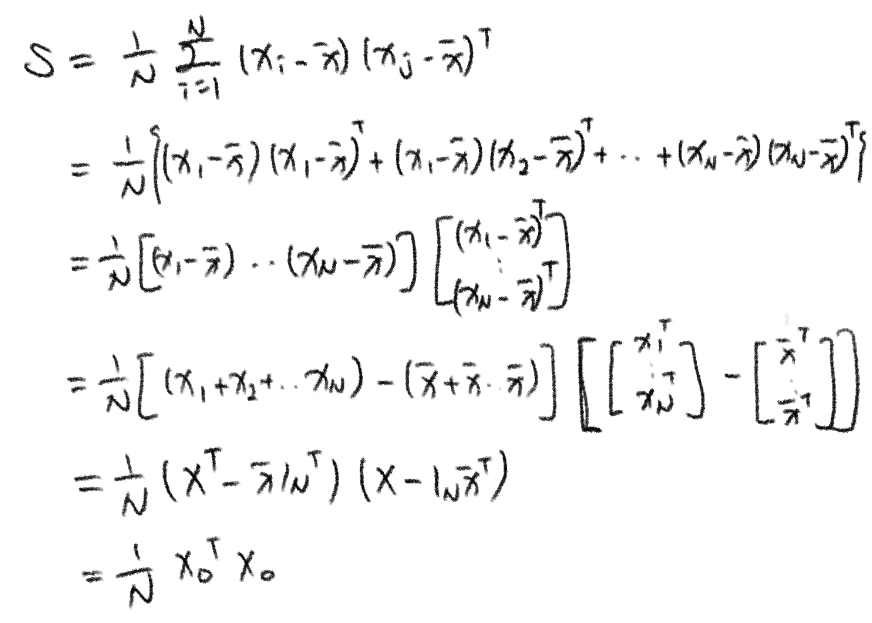 S = 1/N Σ_{i=1}^{N} (x_i - x̄)(x_j - x̄)^T
= 1/N {(x_1 - x̄)(x_1 - x̄)^T + (x_1 - x̄)(x_2 - x̄)^T + ·· + (x_N - x̄)(x_N - x̄)^T}
= 1/N [(x_1 - x̄) ·· (x_N - x̄)] [(x_1 - x̄)^T ⋮ (x_N - x̄)^T]
= 1/N [(x_1 + x_2 + ·· x_N) - (x̄ + x̄ ·· x̄)] [[x_1^T ⋮ x_N^T] - [x̄^T ⋮ x̄^T]]
= 1/N (X^T - x̄ 1_N^T)(X - 1_N x̄^T)
= 1/N X_0^T X_0